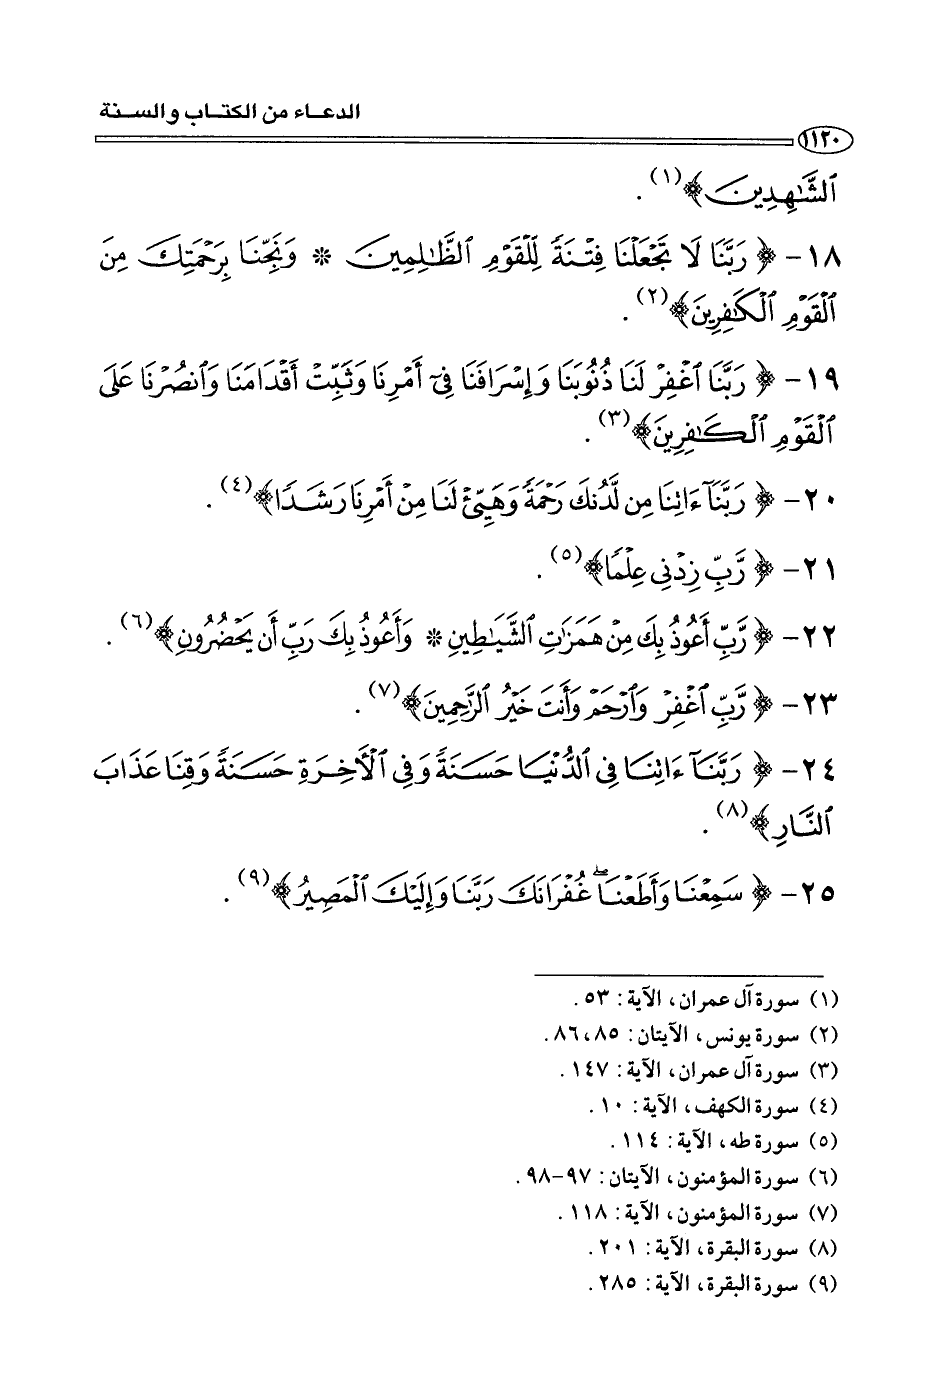 الدعاء من الكتاب والسنة
١١٢٠
ٱلشَّٰهِدِينَ﴾(١) .
١٨- ﴿رَبَّنَا لَا تَجۡعَلۡنَا فِتۡنَةٗ لِّلۡقَوۡمِ ٱلظَّٰلِمِينَ * وَنَجِّنَا بِرَحۡمَتِكَ مِنَ
ٱلۡقَوۡمِ ٱلۡكَٰفِرِينَ﴾(٢) .
١٩- ﴿رَبَّنَا ٱغۡفِرۡ لَنَا ذُنُوبَنَا وَإِسۡرَافَنَا فِيٓ أَمۡرِنَا وَثَبِّتۡ أَقۡدَامَنَا وَٱنصُرۡنَا عَلَى
ٱلۡقَوۡمِ ٱلۡكَٰفِرِينَ﴾(٣) .
٢٠- ﴿رَبَّنَآ ءَاتِنَا مِن لَّدُنكَ رَحۡمَةٗ وَهَيِّئۡ لَنَا مِنۡ أَمۡرِنَا رَشَدٗا﴾(٤) .
٢١- ﴿رَّبِّ زِدۡنِي عِلۡمٗا﴾(٥) .
٢٢- ﴿رَّبِّ أَعُوذُ بِكَ مِنۡ هَمَزَٰتِ ٱلشَّيَٰطِينِ * وَأَعُوذُ بِكَ رَبِّ أَن يَحۡضُرُونِ﴾(٦) .
٢٣- ﴿رَّبِّ ٱغۡفِرۡ وَٱرۡحَمۡ وَأَنتَ خَيۡرُ ٱلرَّٰحِمِينَ﴾(٧) .
٢٤- ﴿رَبَّنَآ ءَاتِنَا فِي ٱلدُّنۡيَا حَسَنَةٗ وَفِي ٱلۡأٓخِرَةِ حَسَنَةٗ وَقِنَا عَذَابَ
ٱلنَّارِ﴾(٨) .
٢٥- ﴿سَمِعۡنَا وَأَطَعۡنَاۖ غُفۡرَانَكَ رَبَّنَا وَإِلَيۡكَ ٱلۡمَصِيرُ﴾(٩) .
(١) سورة آل عمران، الآية: ٥٣ .
(٢) سورة يونس، الآيتان: ٨٥، ٨٦ .
(٣) سورة آل عمران، الآية: ١٤٧ .
(٤) سورة الكهف، الآية: ١٠ .
(٥) سورة طه، الآية: ١١٤ .
(٦) سورة المؤمنون، الآيتان: ٩٧-٩٨ .
(٧) سورة المؤمنون، الآية: ١١٨ .
(٨) سورة البقرة، الآية: ٢٠١ .
(٩) سورة البقرة، الآية: ٢٨٥ .